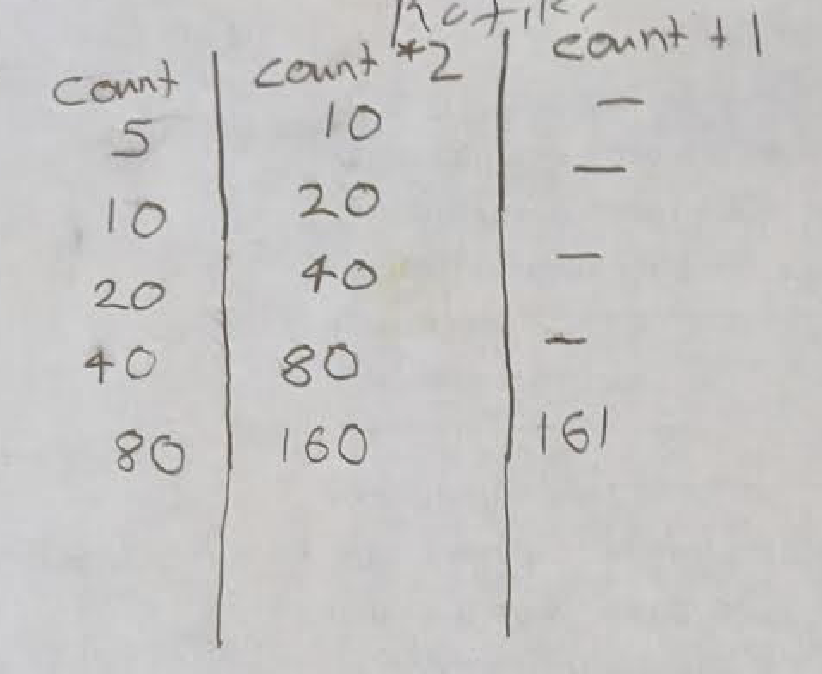 count | count *2 | count + 1
5 | 10 | —
10 | 20 | —
20 | 40 | —
40 | 80 | —
80 | 160 | 161